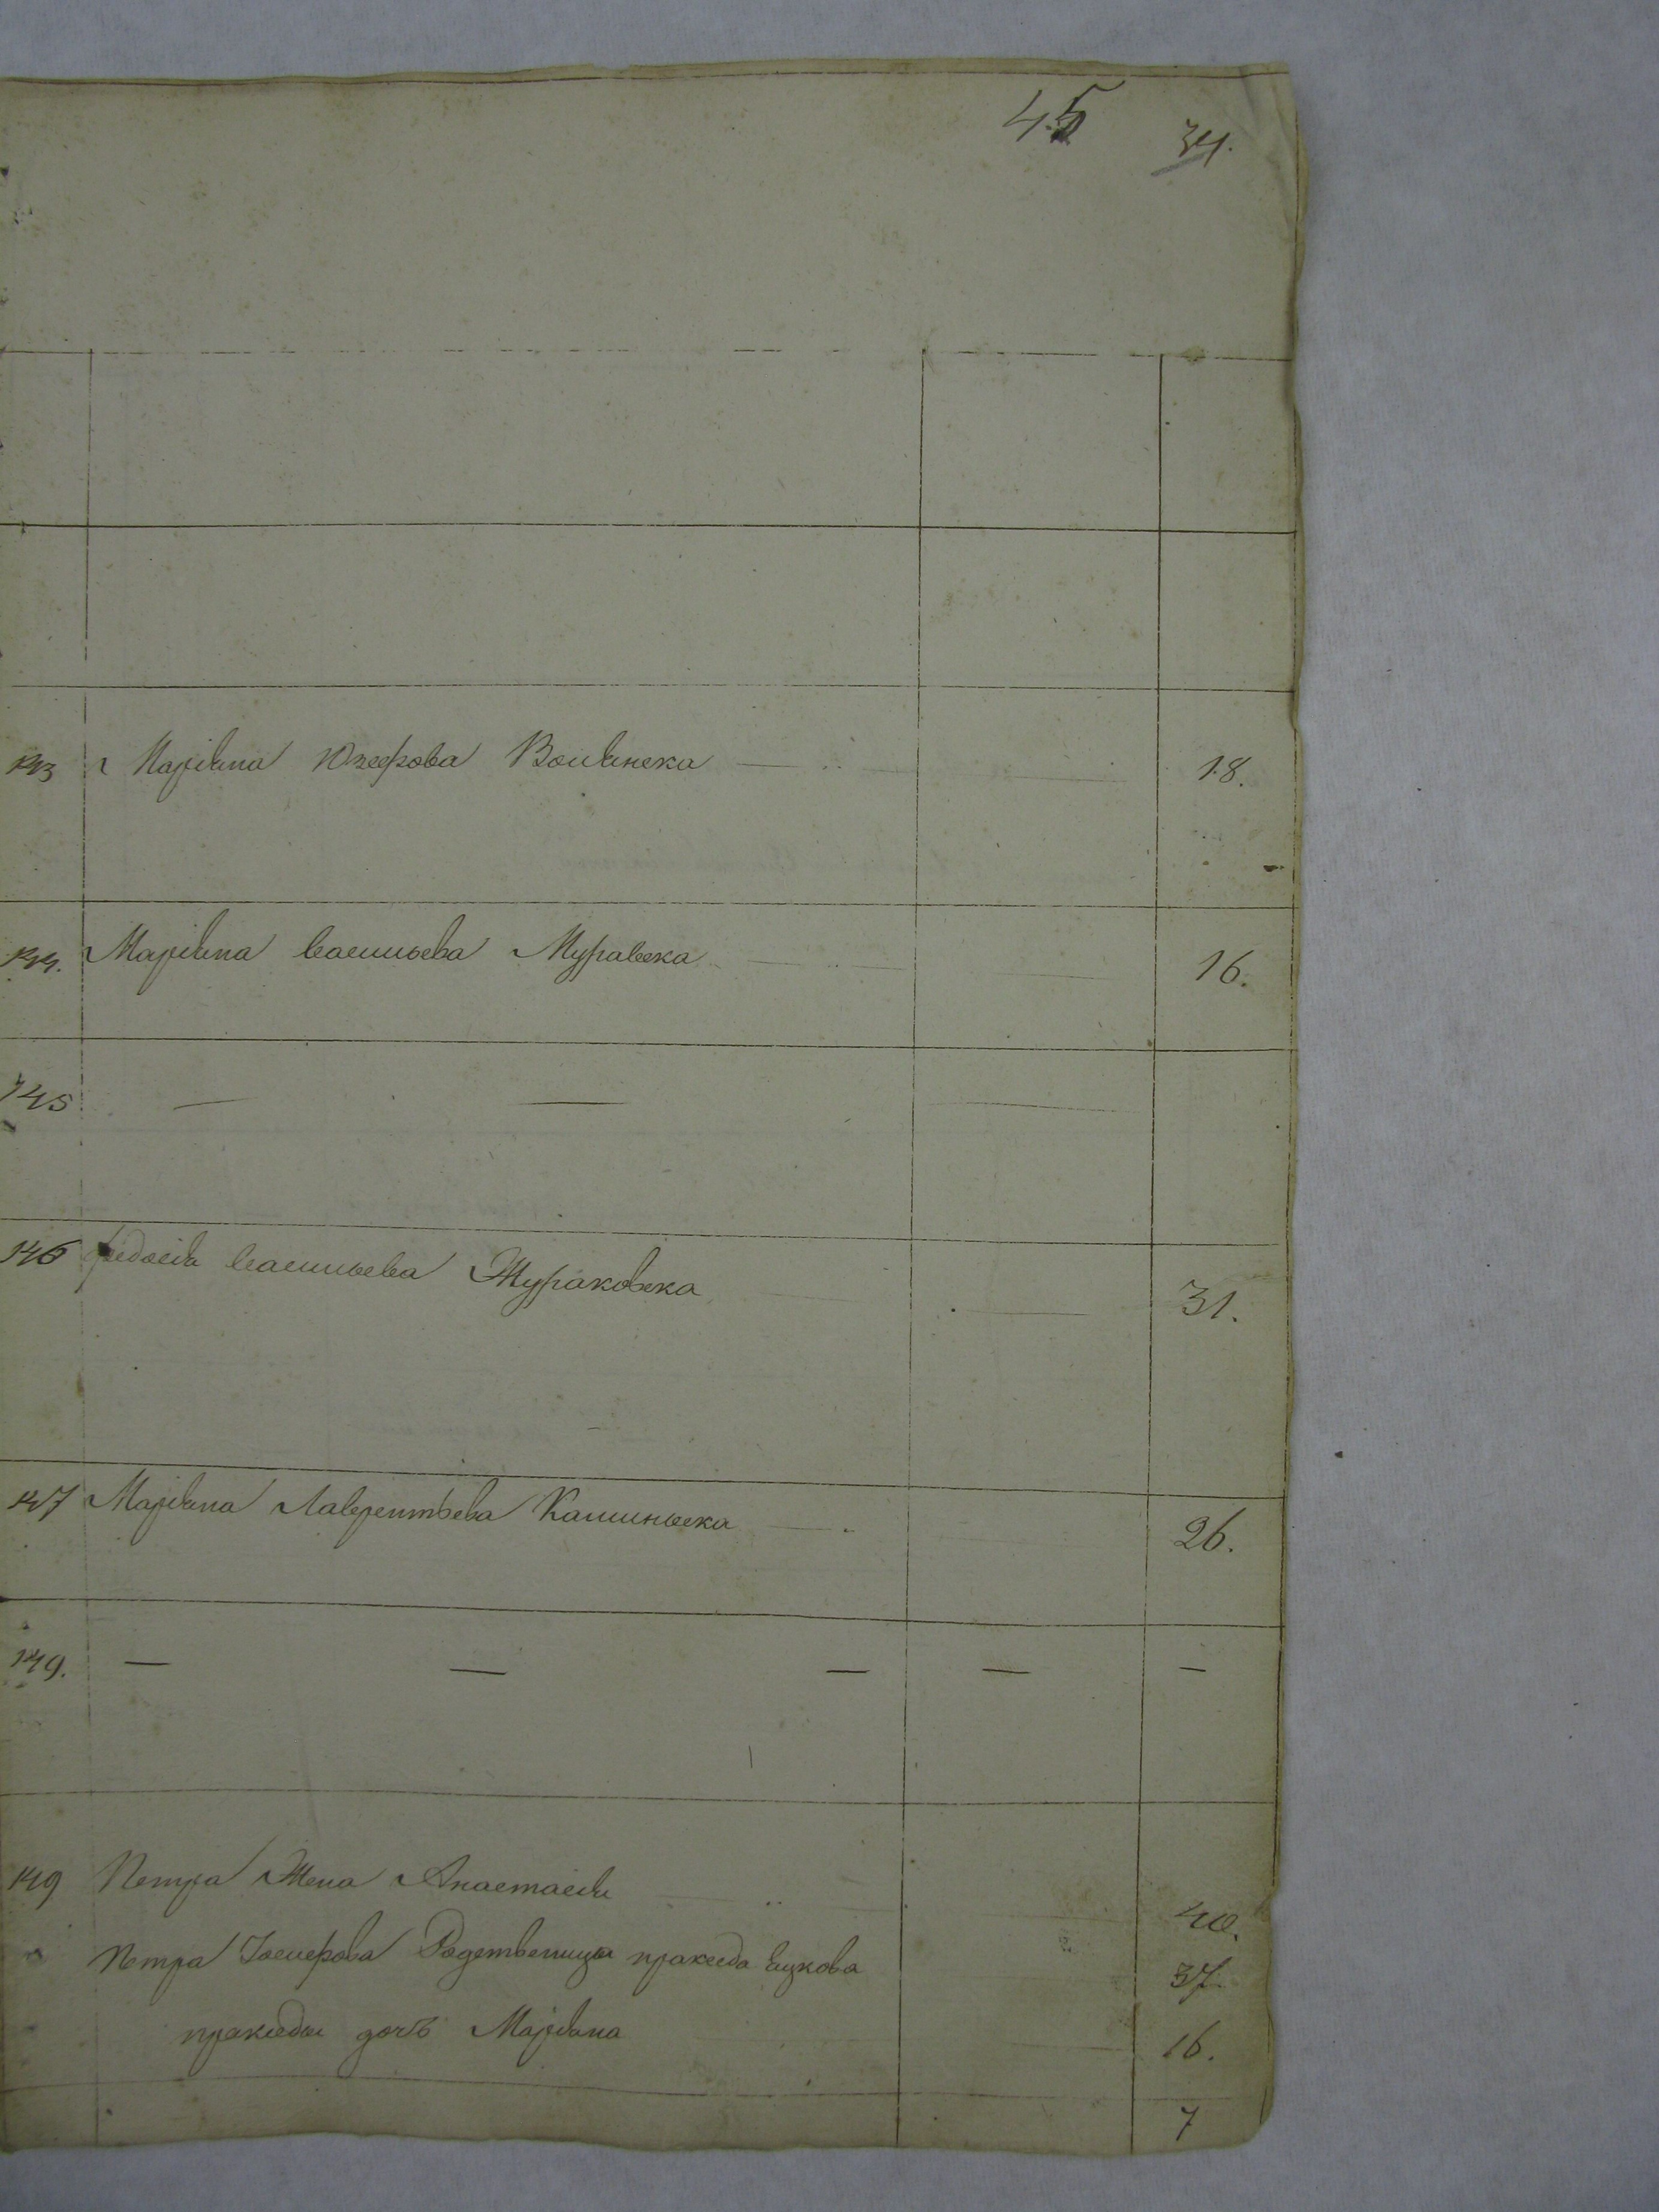 45 34.
143 Маріяна Юзефова Волянска 18.
144. Маріяна Васильева Муравска 16.
145 — —
146 федосія Васильева Жураковска 31.
147 Маріяна Лаврентьева Каминьска 26.
149. — — — — —
149 Петра Жена Анастасія 40.
Петра Іосифова Родственица пракседа Яцкова 37.
пракседы дочь Маріяна 16.
7